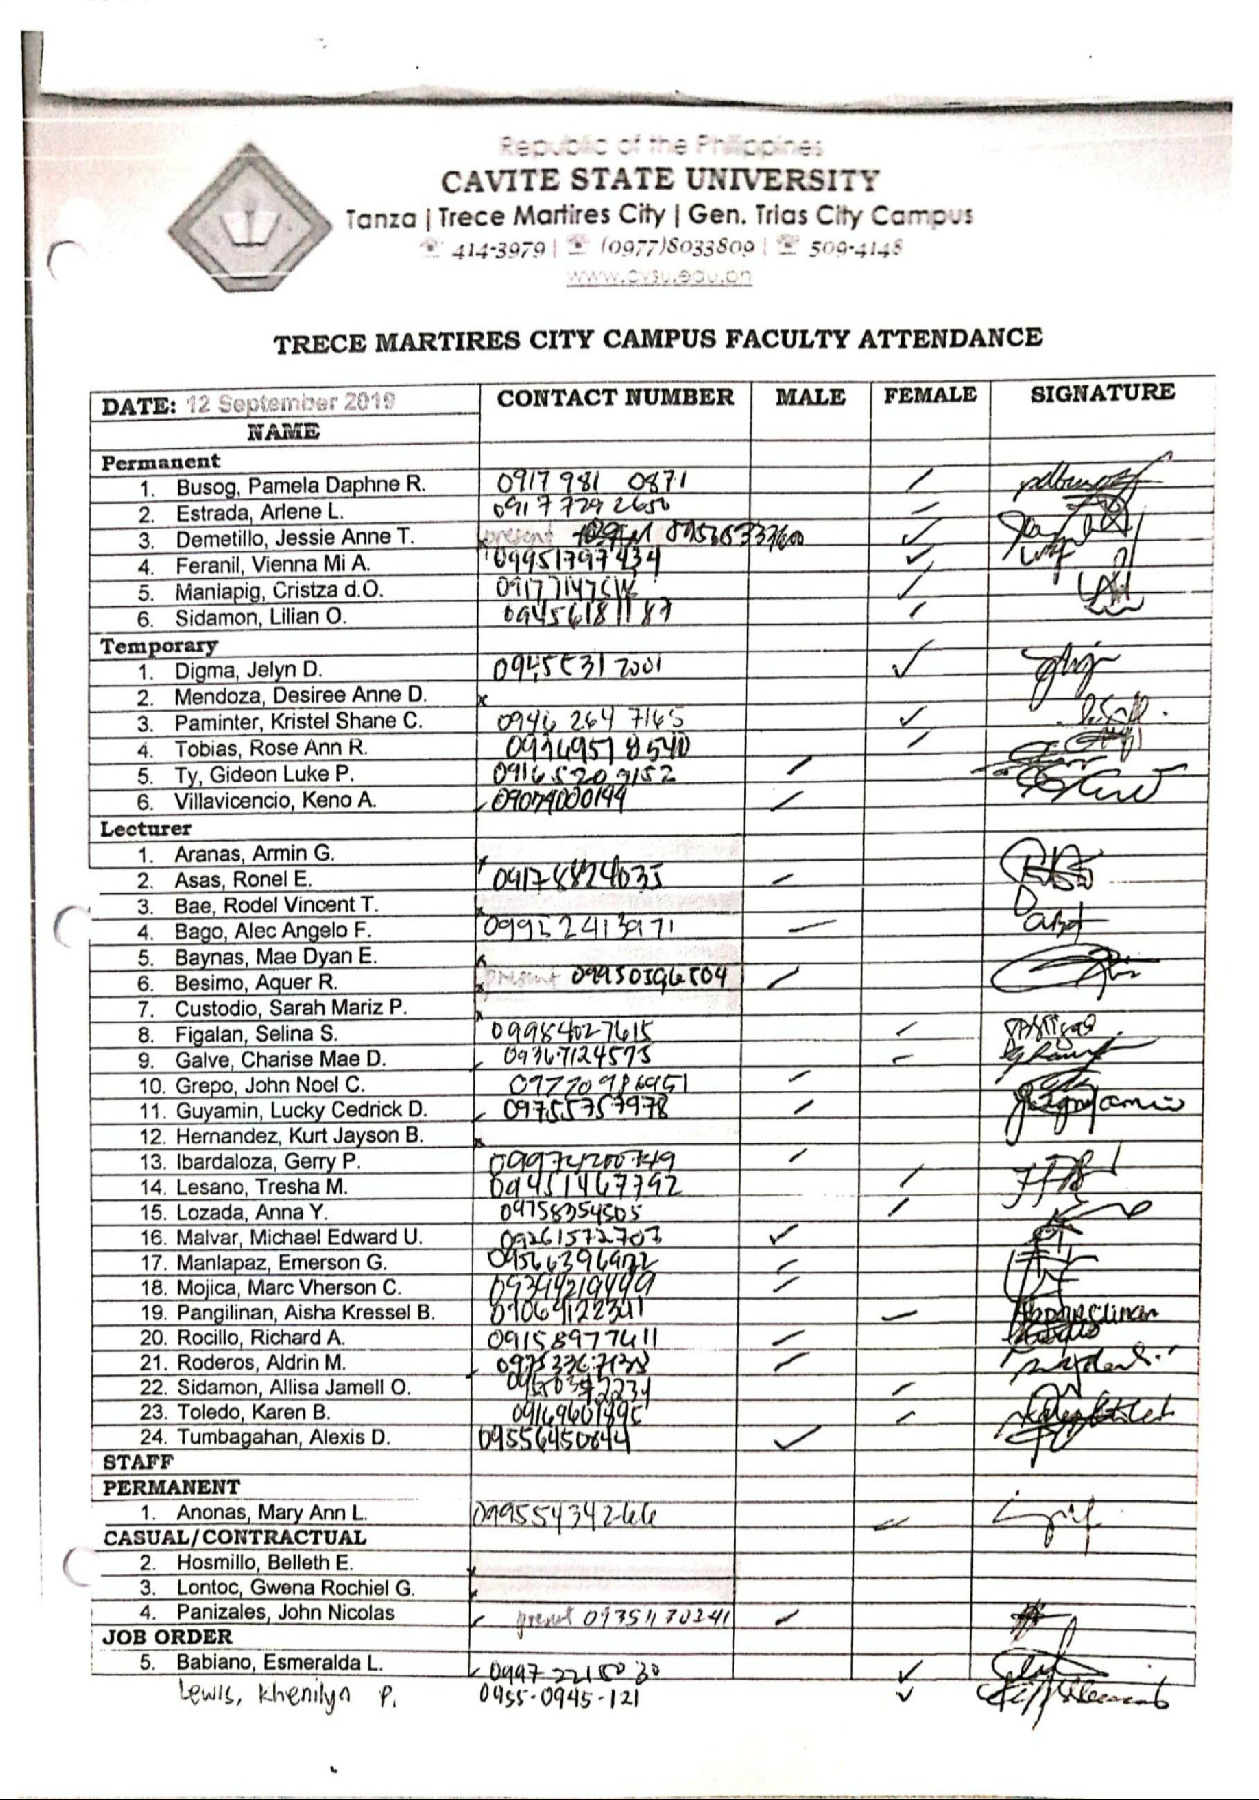 Republic of the Philippines
CAVITE STATE UNIVERSITY
Tanza | Trece Martires City | Gen. Trias City Campus
☏ 414-3979 | ☏ (0977)8033809 | ☏ 509-4148
www.cvsu.edu.ph
TRECE MARTIRES CITY CAMPUS FACULTY ATTENDANCE
DATE: 12 September 2019 CONTACT NUMBER MALE FEMALE SIGNATURE
NAME
Permanent
1. Busog, Pamela Daphne R. 0917 981 0871
2. Estrada, Arlene L. 0917 729 2650
3. Demetillo, Jessie Anne T. present
4. Feranil, Vienna Mi A. 09951797434
5. Manlapig, Cristza d.O.
6. Sidamon, Lilian O. 09456181187
Temporary
1. Digma, Jelyn D. 09455317001
2. Mendoza, Desiree Anne D.
3. Paminter, Kristel Shane C. 0946 264 7165
4. Tobias, Rose Ann R.
5. Ty, Gideon Luke P. 0916 520 9152
6. Villavicencio, Keno A. 09079000199
Lecturer
1. Aranas, Armin G.
2. Asas, Ronel E. 09178824035
3. Bae, Rodel Vincent T.
4. Bago, Alec Angelo F. 09952413971
5. Baynas, Mae Dyan E.
6. Besimo, Aquer R. present
7. Custodio, Sarah Mariz P.
8. Figalan, Selina S. 09984027615
9. Galve, Charise Mae D. 09367124573
10. Grepo, John Noel C.
11. Guyamin, Lucky Cedrick D. 09755757978
12. Hernandez, Kurt Jayson B.
13. Ibardaloza, Gerry P.
14. Lesano, Tresha M. 09451467792
15. Lozada, Anna Y. 09758354505
16. Malvar, Michael Edward U. 09261572707
17. Manlapaz, Emerson G. 09566396972
18. Mojica, Marc Vherson C. 09394219449
19. Pangilinan, Aisha Kressel B. 09069122341
20. Rocillo, Richard A. 09158977611
21. Roderos, Aldrin M.
22. Sidamon, Allisa Jamell O.
23. Toledo, Karen B. 09169601895
24. Tumbagahan, Alexis D. 09556450844
STAFF
PERMANENT
1. Anonas, Mary Ann L. 09955434266
CASUAL/CONTRACTUAL
2. Hosmillo, Belleth E.
3. Lontoc, Gwena Rochiel G.
4. Panizales, John Nicolas present 09351170241
JOB ORDER
5. Babiano, Esmeralda L. 0997 2218030
Lewis, Khenilyn P. 0955-0945-121